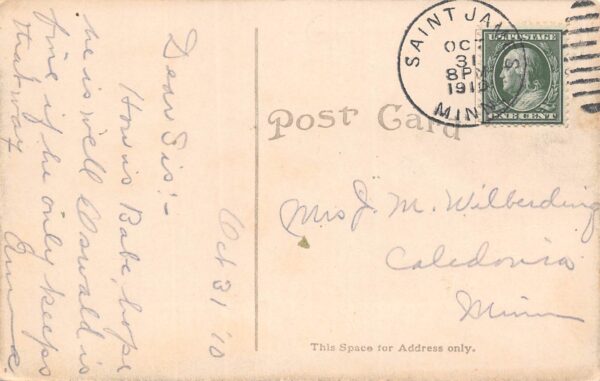 Post Card
SAINT JAMES
OCT
31
8PM
1910
MINN.
U.S. POSTAGE
ONE CENT
Oct 31 '10
Dear Sis:-
How is Babe, hope
he is well Oswald is
fine if he only keeps
that way
Anna.
Mrs J. M. Wilberding
Caledonia
Minn
This Space for Address only.